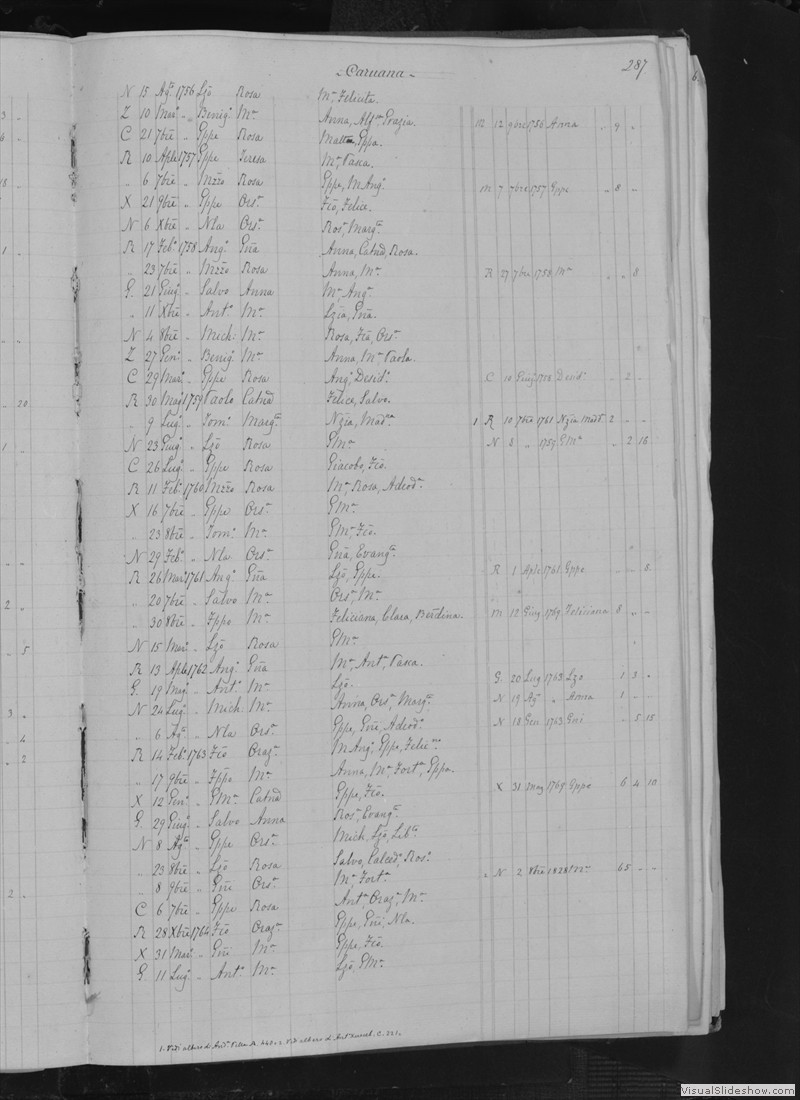 287
Caruana
N 15 Ag: 1756 Lzõ Rosa Mª Felicita.
Z 10 Mar: „ Benig: Mª Anna, Alfª Grazia. M 12 9bre 1756 Anna „ 9 „
C 21 7bre „ Gppe Rosa Matteo, Gppa.
R 10 Aple 1757 Gppe Teresa Mª Pasca.
„ 6 7bre „ Nzzo Rosa Gppe, M Angª M 7 7bre 1757 Gppe „ 8 „
X 21 9bre „ Gppe Orsª Fcõ, Felice.
N 6 Xbre „ Nla Orsª Rosª Margª
R 17 Febº 1758 Angº Gña Anna, Catnã, Rosa.
„ 23 7bre „ Nzzo Rosa Anna, Mª R 27 7bre 1758 Mª „ „ 8
G. 21 Giugº „ Salvo Anna Mª Angª
„ 11 Xbre „ Antº Mª Lzia, Gña.
N 4 8bre „ Mich: Mª Rosa, Fcã, Orsª
Z 27 Genº „ Benigº Mª Anna, Mª Paola.
C 29 Marº „ Gppe Rosa Angª Desidª C 10 Giugº Desidª „ 2 „
R 30 Magº 1759 Paolo Catnã Felice, Salvo.
„ 9 Lugº „ Tomº Margª Nzia, Madª 1. R 10 7bre 1761 Nzia Madª 2 „ „
N 23 Giugº „ Lzõ Rosa GMª N 8 „ 1759 GMª „ 2 16
C 26 Lugº „ Gppe Rosa Giacobo, Fcõ.
R 11 Febº 1760 Nzzo Rosa Mª Rosa, Adeodª
X 16 7bre „ Gppe Orsª GMª
„ 23 8bre „ Tomº Mª GMª Fcõ.
N 29 Febº „ Nla Orsª Gña, Evangª
R 26 Marº 1761 Angº Gña Lzõ, Gppe. R 1 Aple 1761 Gppe „ „ 8
„ 20 7bre „ Salvo Mª Orsª Mª
„ 30 8bre „ Fppo Mª Feliciana, Clara, Berdina. M 12 Giug 1769 Feliciana 8 „ „
N 15 Marº „ Lzõ Rosa GMª
R 13 Aple 1762 Angº Gña Mª Antª Pasca.
G. 19 Magº „ Antº Mª Lzõ. G. 20 Lug 1763 Lzo 1 3 „
N 24 Lugº „ Mich: Mª Anna, Orsª Margª N 19 Ag: „ Anna 1 „ „
„ 6 Agº „ Nla Orsª Gppe, Gñi, Adeodº N 18 Gen 1763 Gni „ 5 15
R 14 Febº 1763 Fcõ Grazª M Angª Gppe, Felicª
„ 17 9bre „ Fppo Mª Anna, Mª Fortª Gppa.
X 12 Genº „ GMª Catnã Gppe, Fcõ. X 31 Mag 1769 Gppe 6 4 10
G. 29 Giugº „ Salvo Anna Rosª Evangª
N 8 Agº „ Gppe Orsª Mich, Lzõ, Libª
„ 23 8bre „ Lzõ Rosa Salvo, Calcedº Rosª
„ 8 9bre „ Gñi Orsª Mª Fortª N 2 8bre 1828 Mª 65 „ „
C 6 7bre „ Gppe Rosa Antª Grazª Mª
R 28 Xbre 1764 Fcõ Grazª Gppe, Gñi, Nla.
X 31 Marº „ Gñi Mª Gppe, Fcõ.
G. 11 Lugº „ Antº Mª Lzõ, GMª
1. Vedi albero di
VisualSlideshow.com